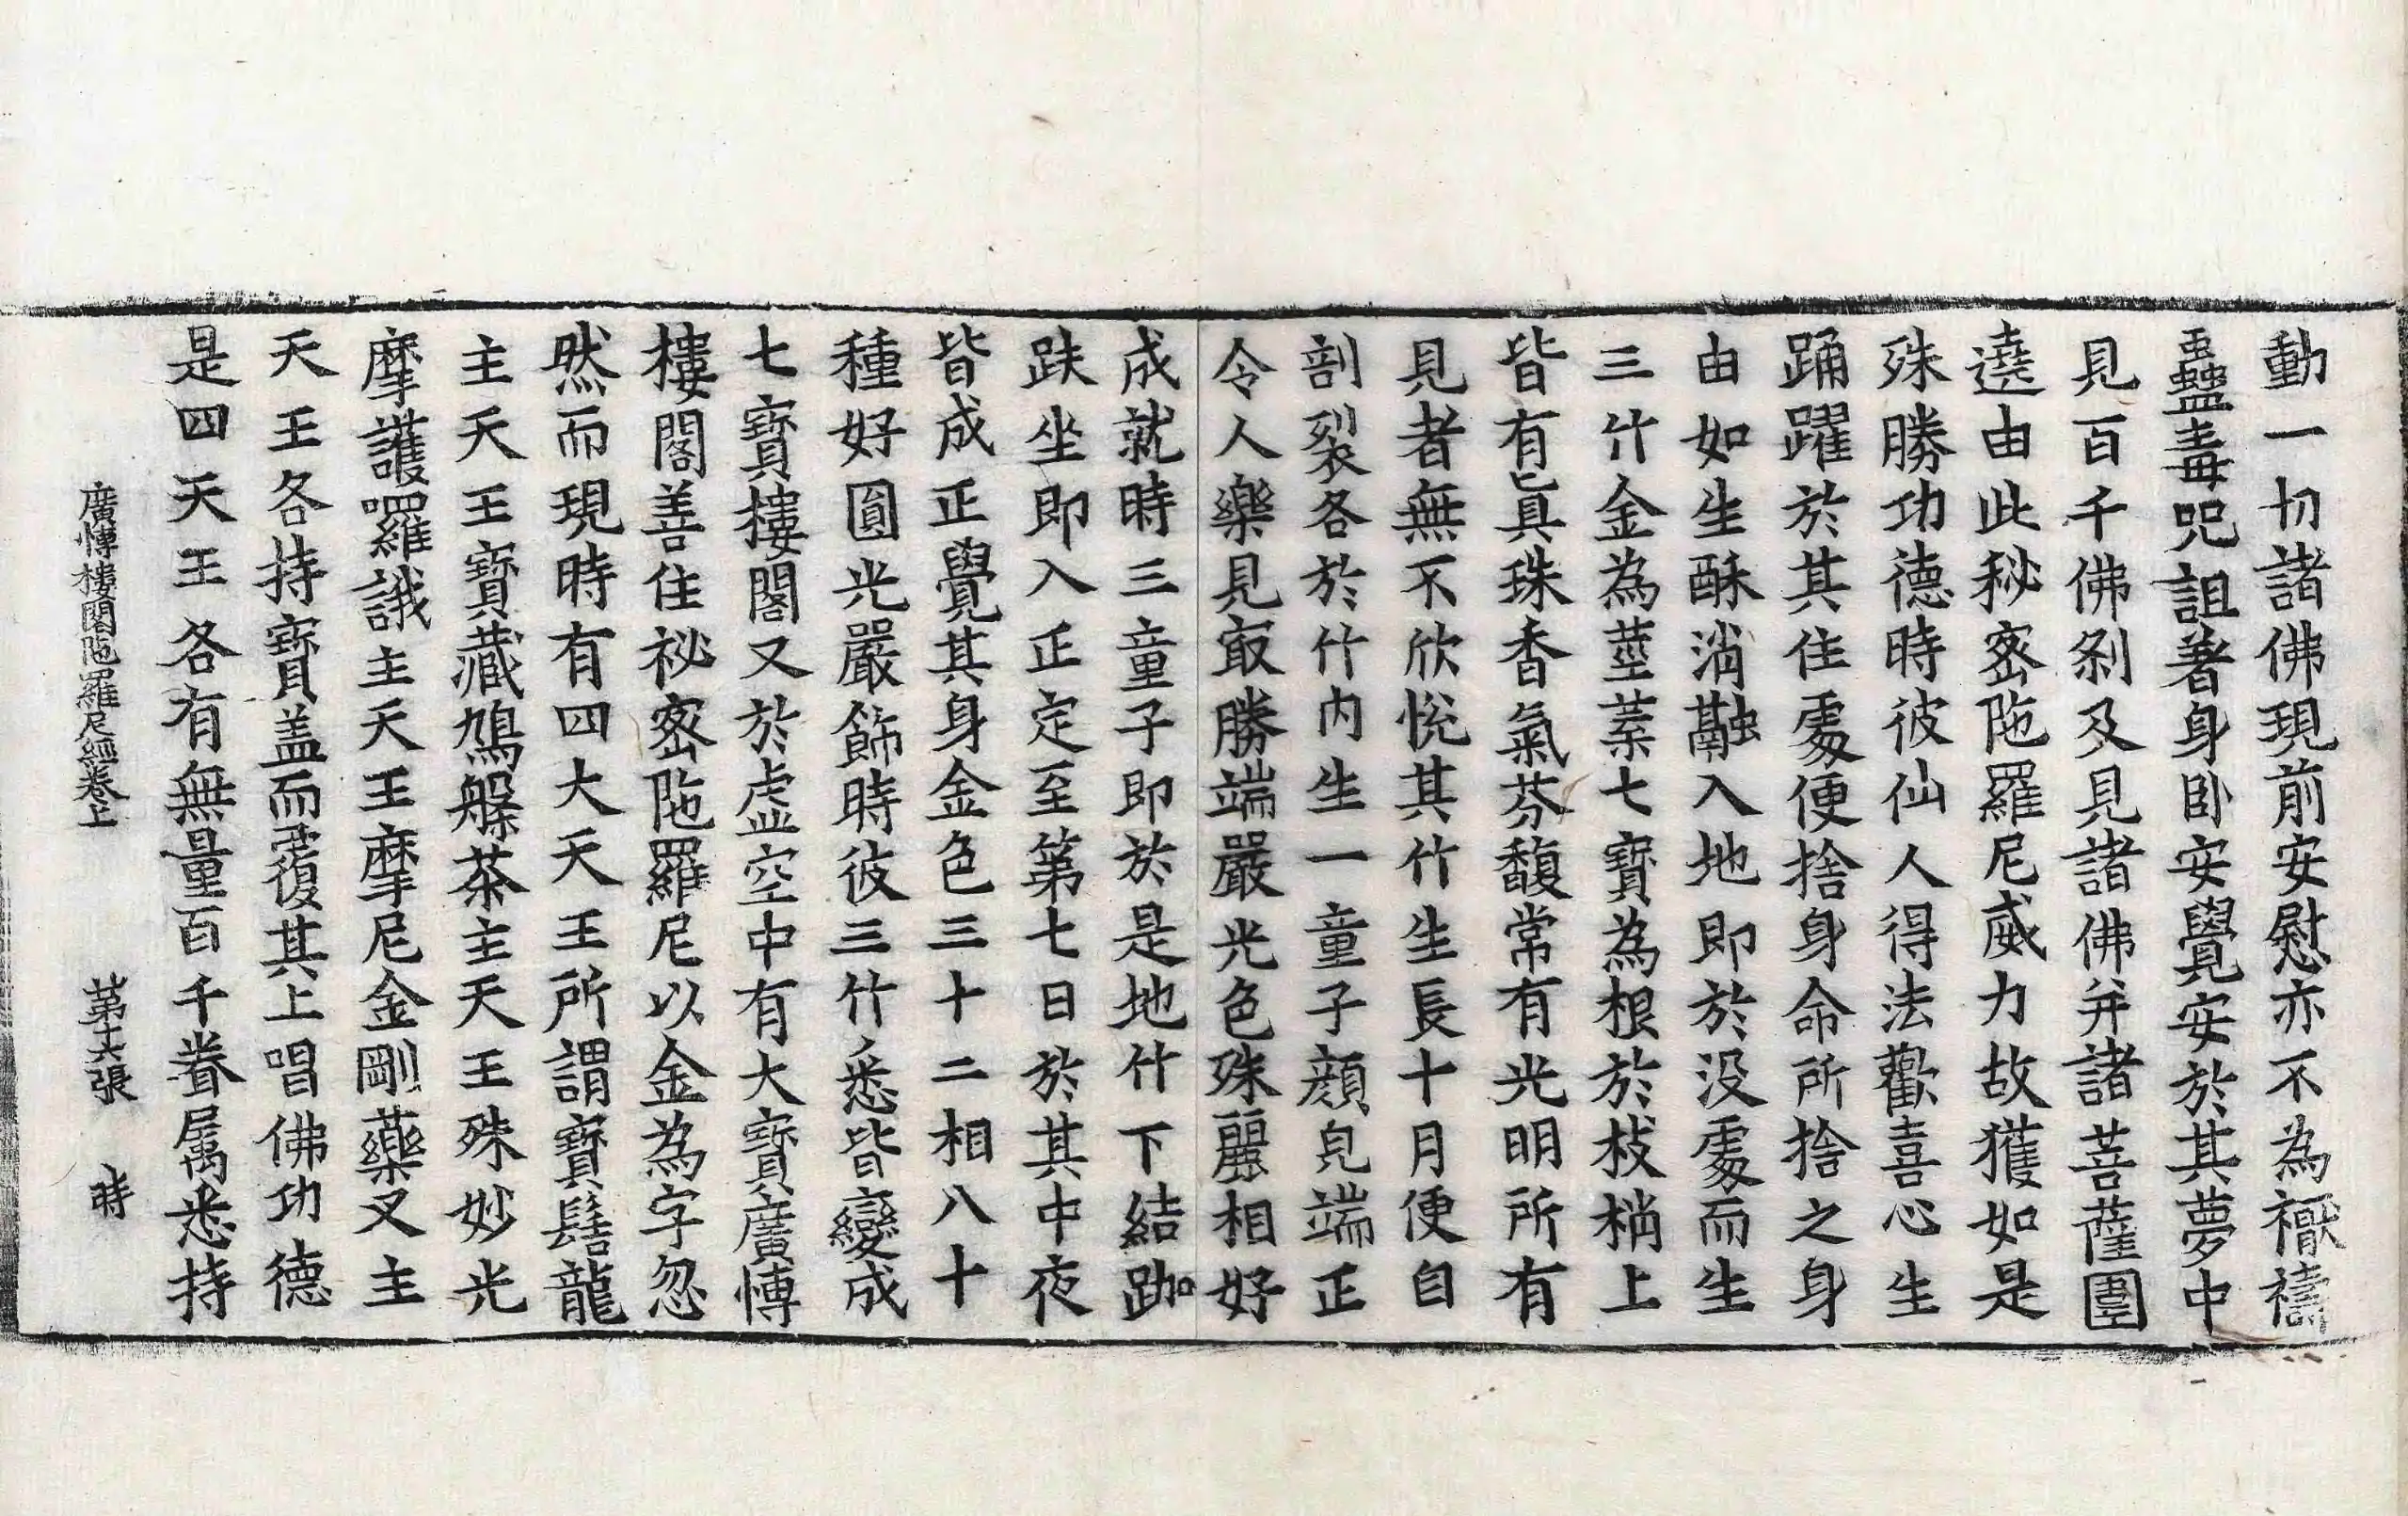 動一切諸佛現前安慰亦不為禳禱
蠱毒咒詛著身卧安覺安於其夢中
見百千佛剎及見諸佛并諸菩薩圍
遶由此秘密陁羅尼威力故獲如是
殊勝功德時彼仙人得法歡喜心生
踊躍於其住處便捨身命所捨之身
由如生酥消融入地即於没處而生
三竹金為莖葉七寶為根於枝梢上
皆有真珠香氣芬馥常有光明所有
見者無不欣悅其竹生長十月便自
剖裂各於竹内生一童子顔皃端正
令人樂見㝡勝端嚴光色殊麗相好
成就時三童子即於是地竹下結跏
趺坐即入正定至第七日於其中夜
皆成正覺其身金色三十二相八十
種好圓光嚴飾時彼三竹悉皆變成
七寶樓閣又於虛空中有大寶廣愽
樓閣善住祕密陁羅尼以金為字忽
然而現時有四大天王所謂寶髻龍
主天王寶藏鳩槃茶主天王殊妙光
摩護囉誐主天王摩尼金剛藥叉主
天王各持寶盖而覆其上唱佛功德
是四天王各有無量百千眷属悉持
廣愽樓閣陁羅尼經卷上 第六張 時